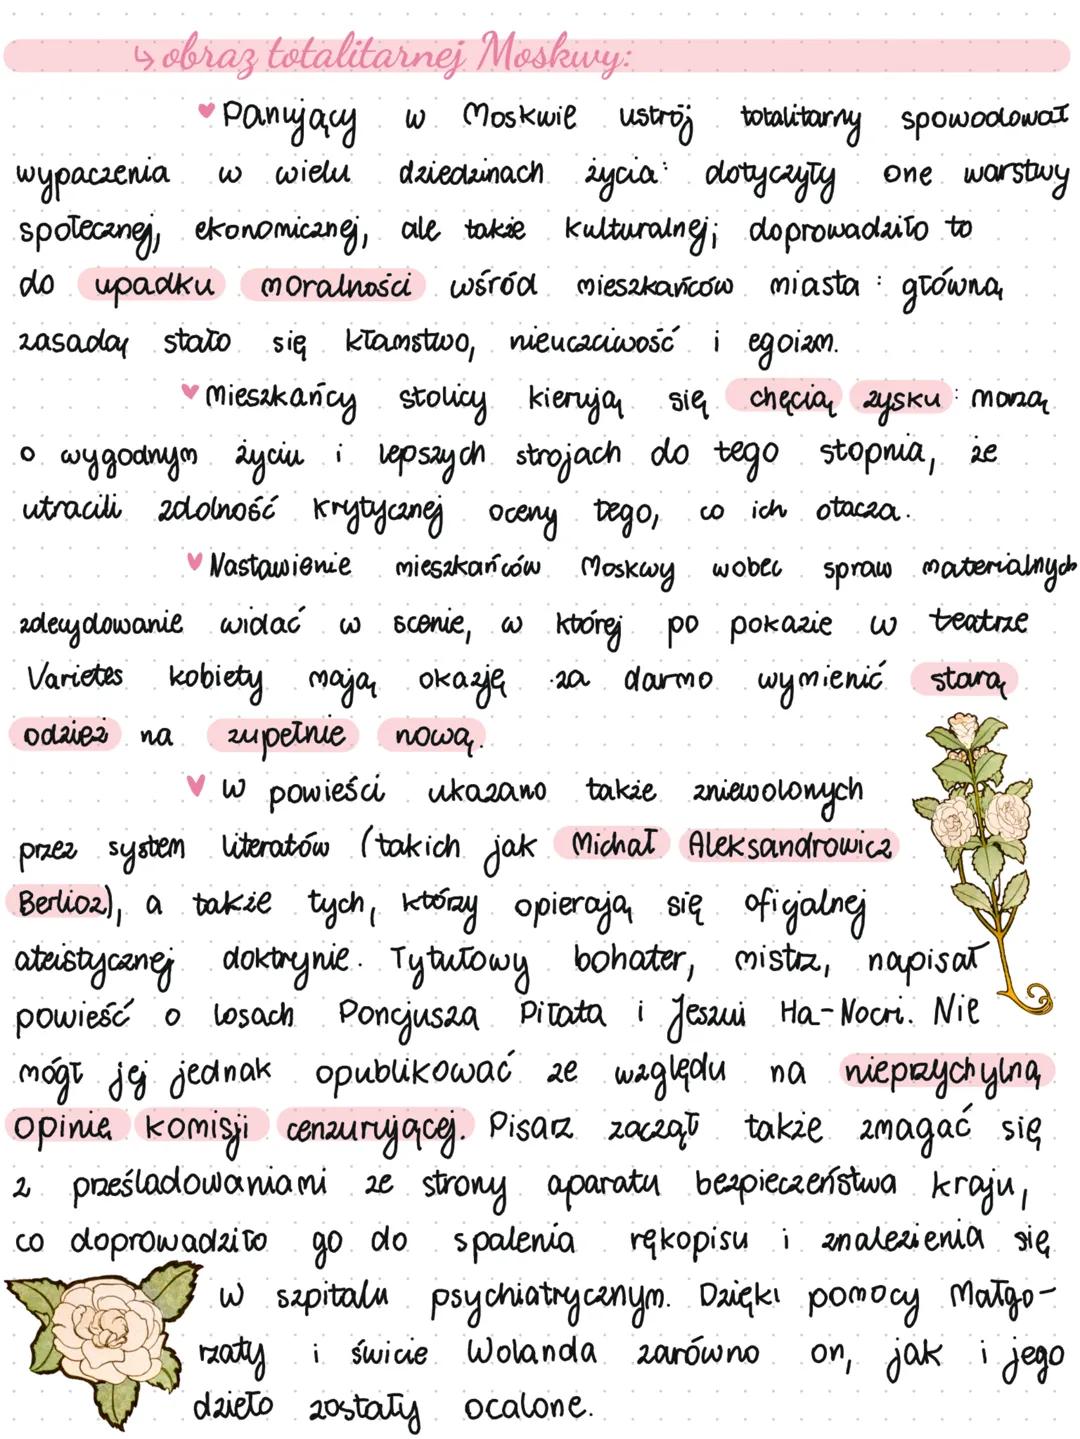 ↳ obraz totalitarnej Moskwy:
♥ Panujący w Moskwie ustrój totalitarny spowodował
wypaczenia w wielu dziedzinach życia: dotyczyły one warstwy
społecznej, ekonomicznej, ale także kulturalnej; doprowadziło to
do upadku moralności wśród mieszkańców miasta: główną
zasadą stało się kłamstwo, nieuczciwość i egoizm.
♥ Mieszkańcy stolicy kierują się chęcią zysku: marzą
o wygodnym życiu i lepszych strojach do tego stopnia, że
utracili zdolność krytycznej oceny tego, co ich otacza.
♥ Nastawienie mieszkańców Moskwy wobec spraw materialnych
zdecydowanie widać w scenie, w której po pokazie w teatrze
Varietes kobiety mają okazję za darmo wymienić starą
odzież na zupełnie nową.
♥ W powieści ukazano także zniewolonych
przez system literatów (takich jak Michał Aleksandrowicz
Berlioz), a także tych, którzy opierają się oficjalnej
ateistycznej doktrynie. Tytułowy bohater, mistrz, napisał
powieść o losach Poncjusza Piłata i Jeszui Ha-Nocri. Nie
mógł jej jednak opublikować ze względu na nieprzychylną
opinię komisji cenzurującej. Pisarz zaczął także zmagać się
z prześladowaniami ze strony aparatu bezpieczeństwa kraju,
co doprowadziło go do spalenia rękopisu i znalezienia się
w szpitalu psychiatrycznym. Dzięki pomocy Małgo-
rzaty i świcie Wolanda zarówno on, jak i jego
dzieło zostały ocalone.